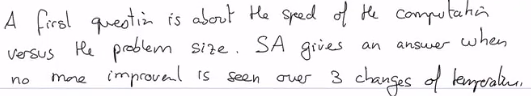 A first question is about the speed of the computation
versus the problem size. SA gives an answer when
no more improvement is seen over 3 changes of temperature.